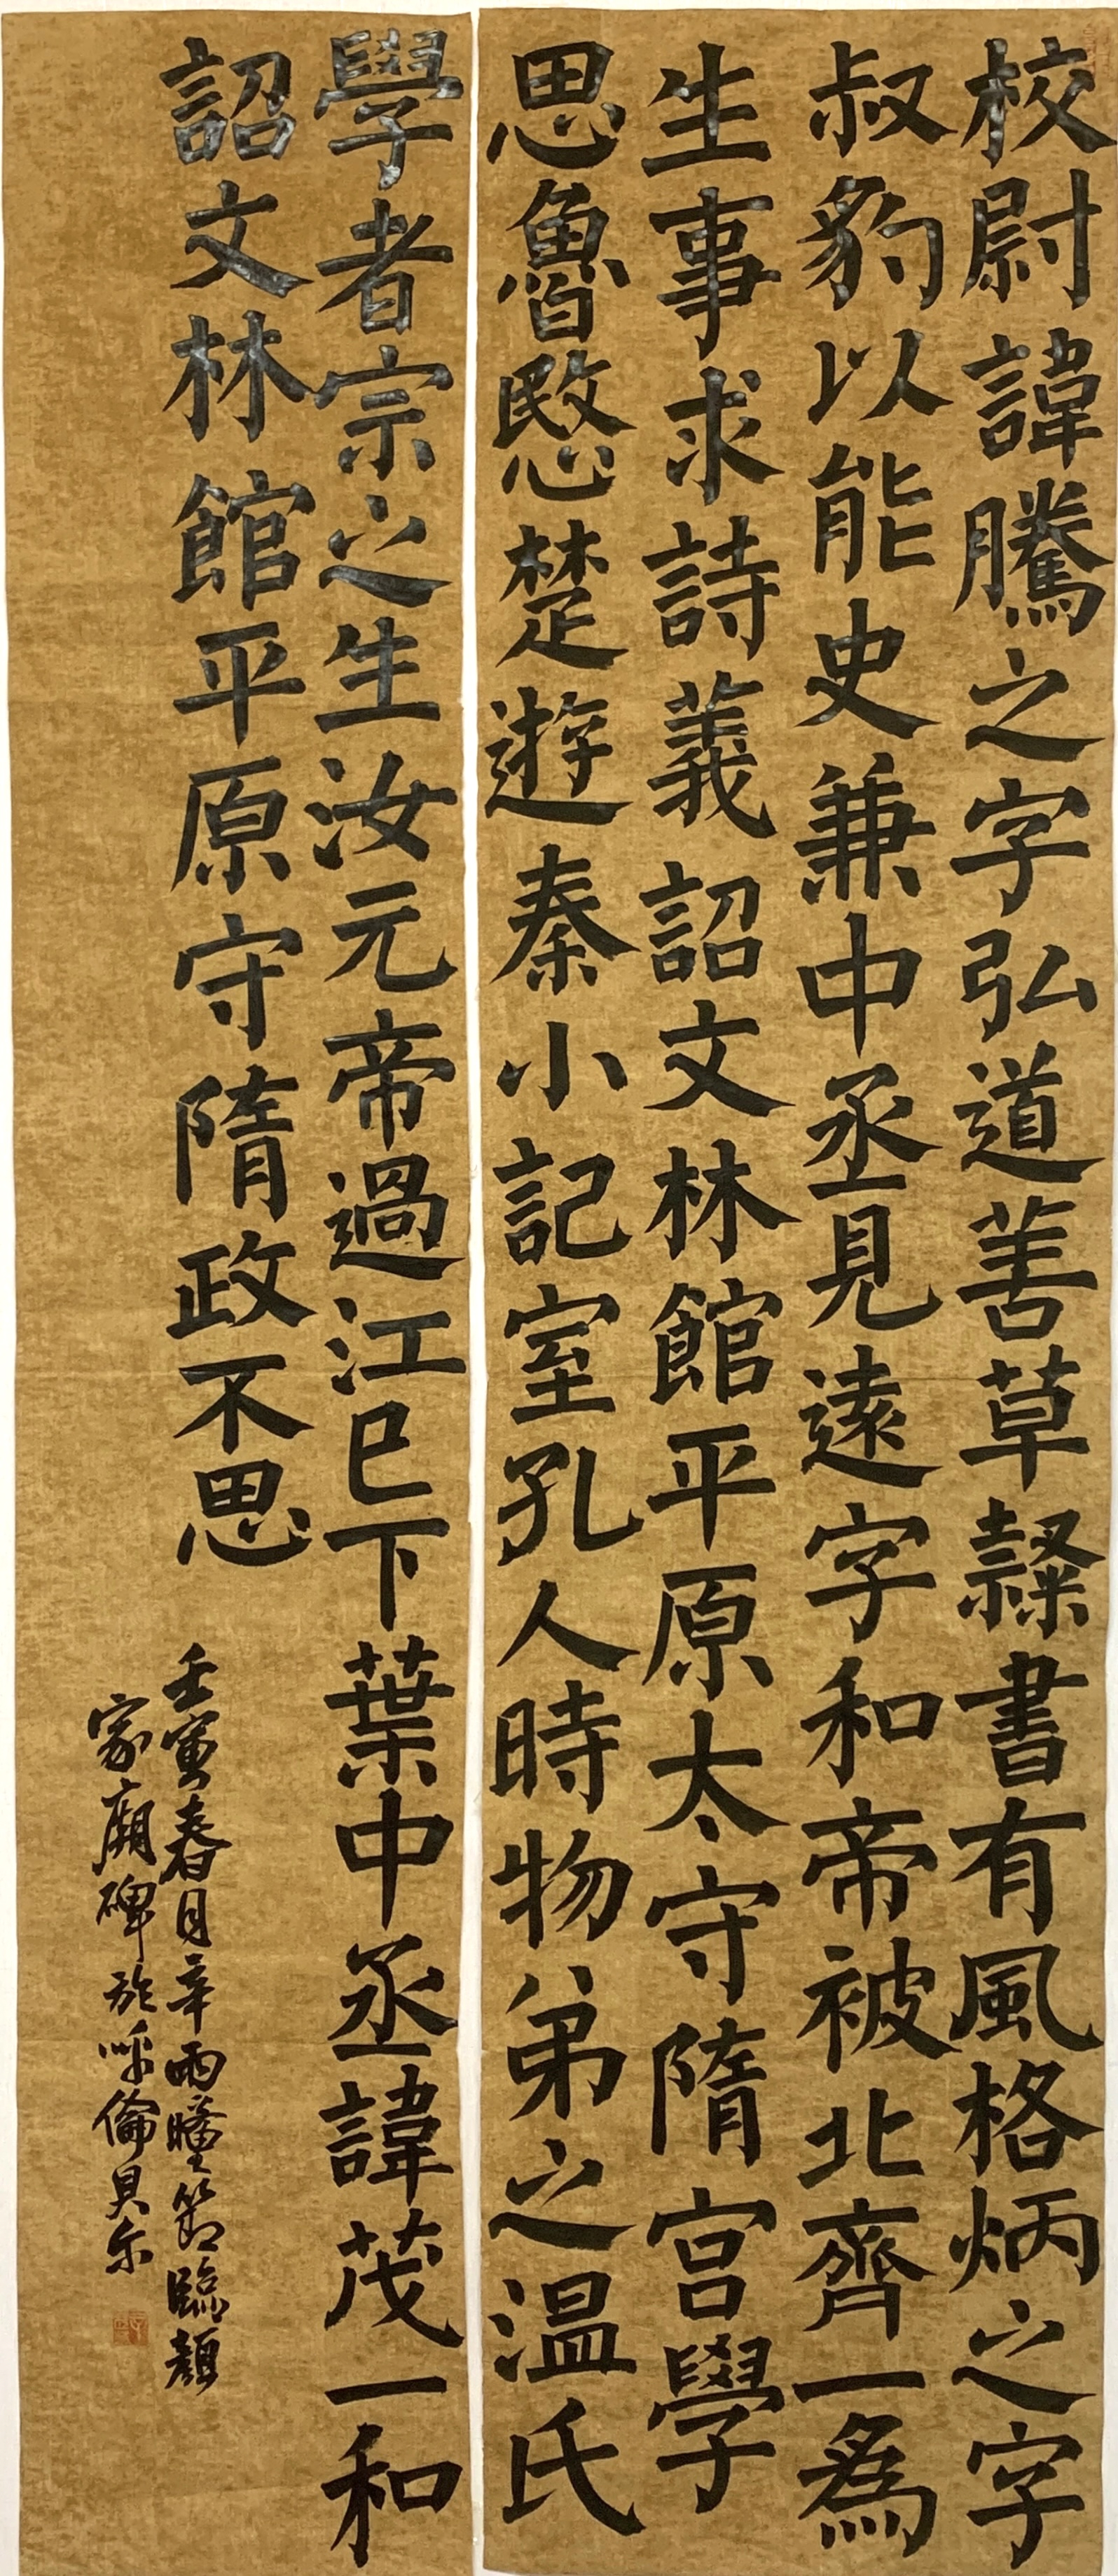 校尉諱騰之字弘道善草隸書有風格炳之字
叔豹以能史兼中丞見遠字和帝被北齊一為
生事求詩義詔文林館平原太守隋宮學
思魯愍楚遊秦小記室孔人時物弟之温氏
學者宗之生汝元帝過江已下葉中丞諱茂一和
詔文林館平原守隋政不思
壬寅春月辛雨瞳節臨顏
家廟碑於呼倫貝尔